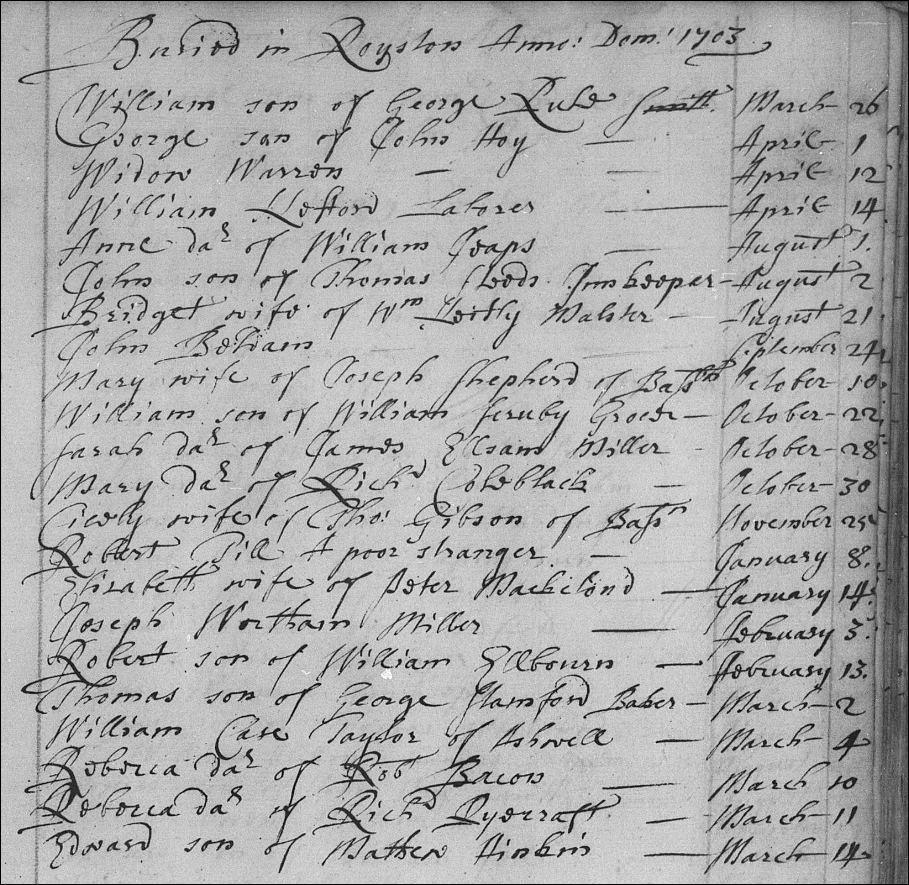 Buried in Royston Anno: Dom: 1703
William son of George Rule Smith March 26
George son of John Hoy — April 1
Widow Warren — — April 12
William Hefford Laborer — April 14
Anne daʳ of William Jeaps — August 1.
John son of Thomas Needs Innkeeper – August 2
Bridget wife of Wᵐ Malster – August 21
John Beham September 24
Mary wife of Joseph Shepherd of Bassⁿ October 10
William son of William Scruby Grocer – October – 22
Sarah daʳ of James Ellsam Miller – October – 28
Mary daʳ of Richᵈ Coleblack — October 30
Cicely wife of Tho: Gibson of Bassⁿ November 25
Robert Till A poor stranger — January 8.
Elizabeth wife of Peter — January 14
Joseph Wortham Miller — February 3
Robert son of William Edbourn — February 13.
Thomas son of George Stamford Baker – March – 2
William Case Taylor of Ashwell — March 4
Rebecca daʳ of Robᵗ Bacon — March 10
Rebecca daʳ of Richᵈ Ryecraft — March – 11
Edward son of Mathew Hinkin — March – 14